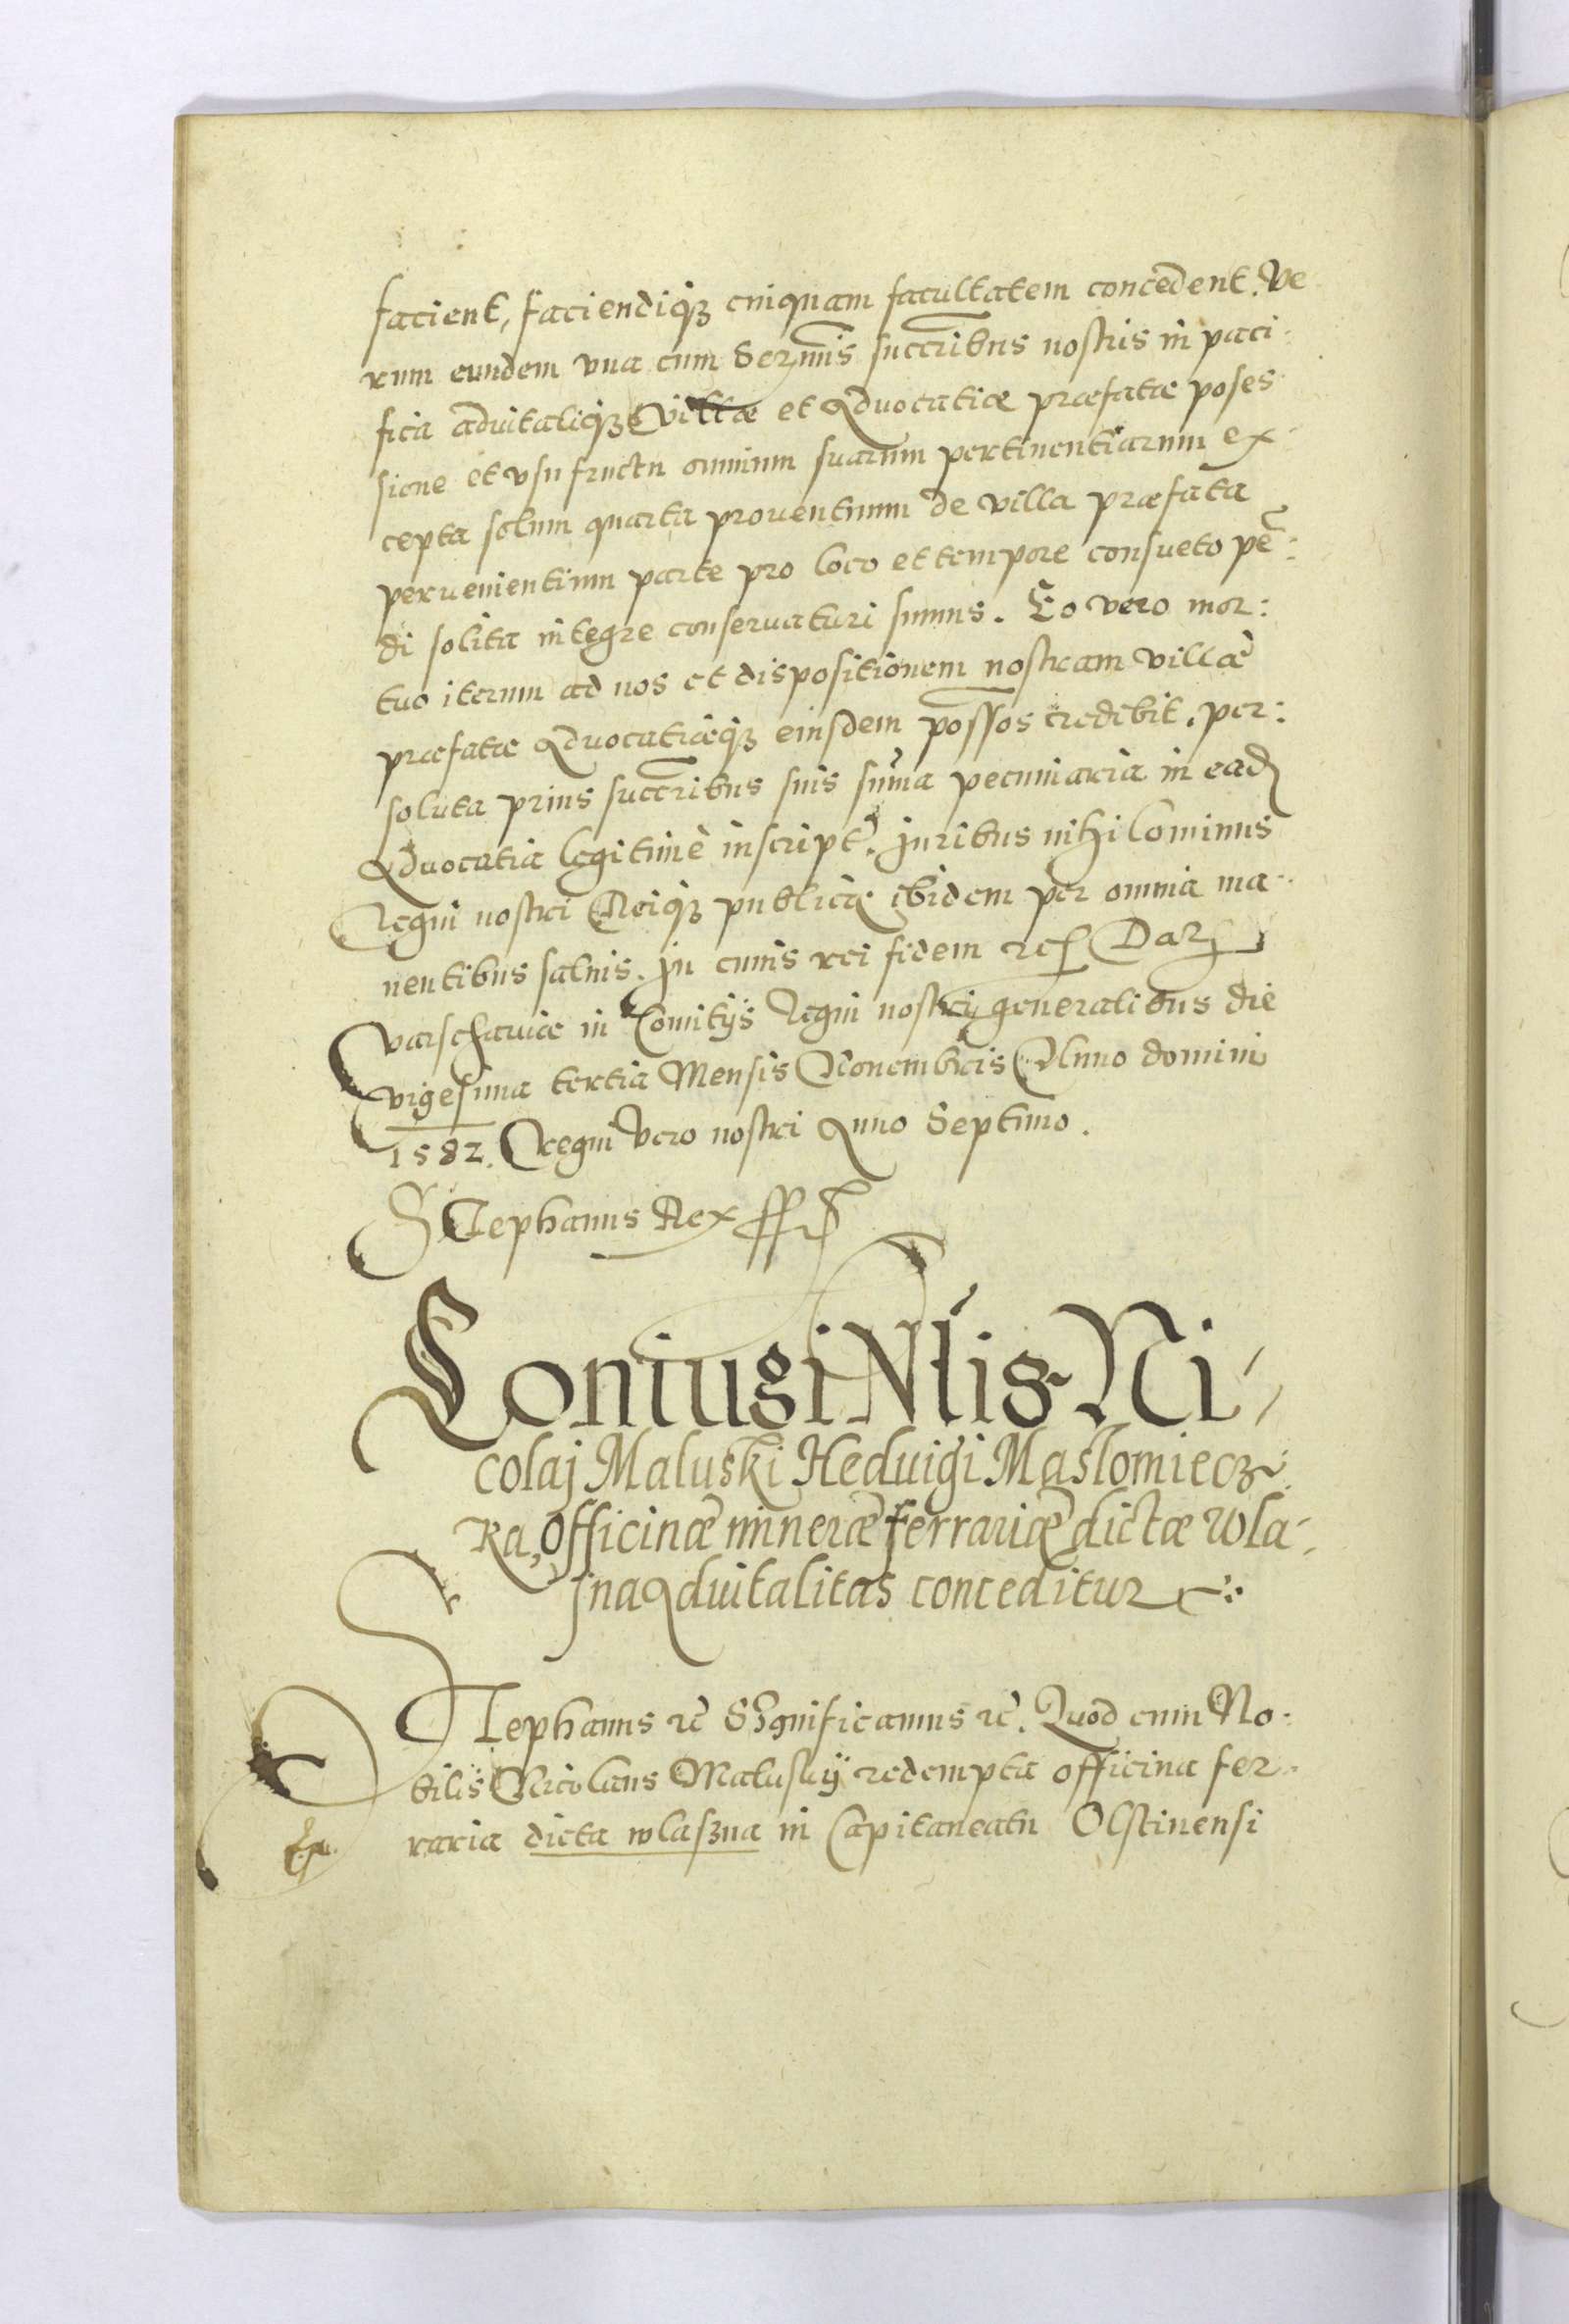 facient, faciendiq₃ cuiquam facultatem concedent. Ve
rum eundem vna cum Sermis succribus nostris in paci:
fica aduitaliq₃ Villæ et Aduocatiæ præfatæ poses
sione et vsufructu omnium suarum pertinentiarum ex:
cepta solum quarta prouentuum de villa præfata
peruenientium parte pro loco et tempore consueto pē:
di solita integre conseruaturi sumus. Eo vero mor:
tuo iterum ad nos et dispositionem nostram villæ
præfatæ Aduocatiæq₃ eiusdem possos redebit. per:
soluta prius succribus suis suma pecuniaria in ead
Aduocatia legitimè inscript. Juribus nihilominus
Regni nostri Reiq₃ publicæ ibidem per omnia ma:
nentibus saluis. In cuius rei fidem rc Dat
Varschauiæ in Comitijs Regni nostri generalibus die
vigesima tertia Mensis Nouembris Anno domini
1582. Regni Vero nostri Anno Septimo.
Stephanus Rex
Coniugi Nlis Ni,
colaj Maluski Heduigi Maslomiecz
ka, Officinæ mineræ ferrariæ dictæ Wla:
sna Aduitalitas conceditur
Stephanus rc Significamus rc. Quod cum No:
bilis Nicolaus Maluskij redempta officina fer:
raria dicta wlaszna in Capitaneatu Olstinensi